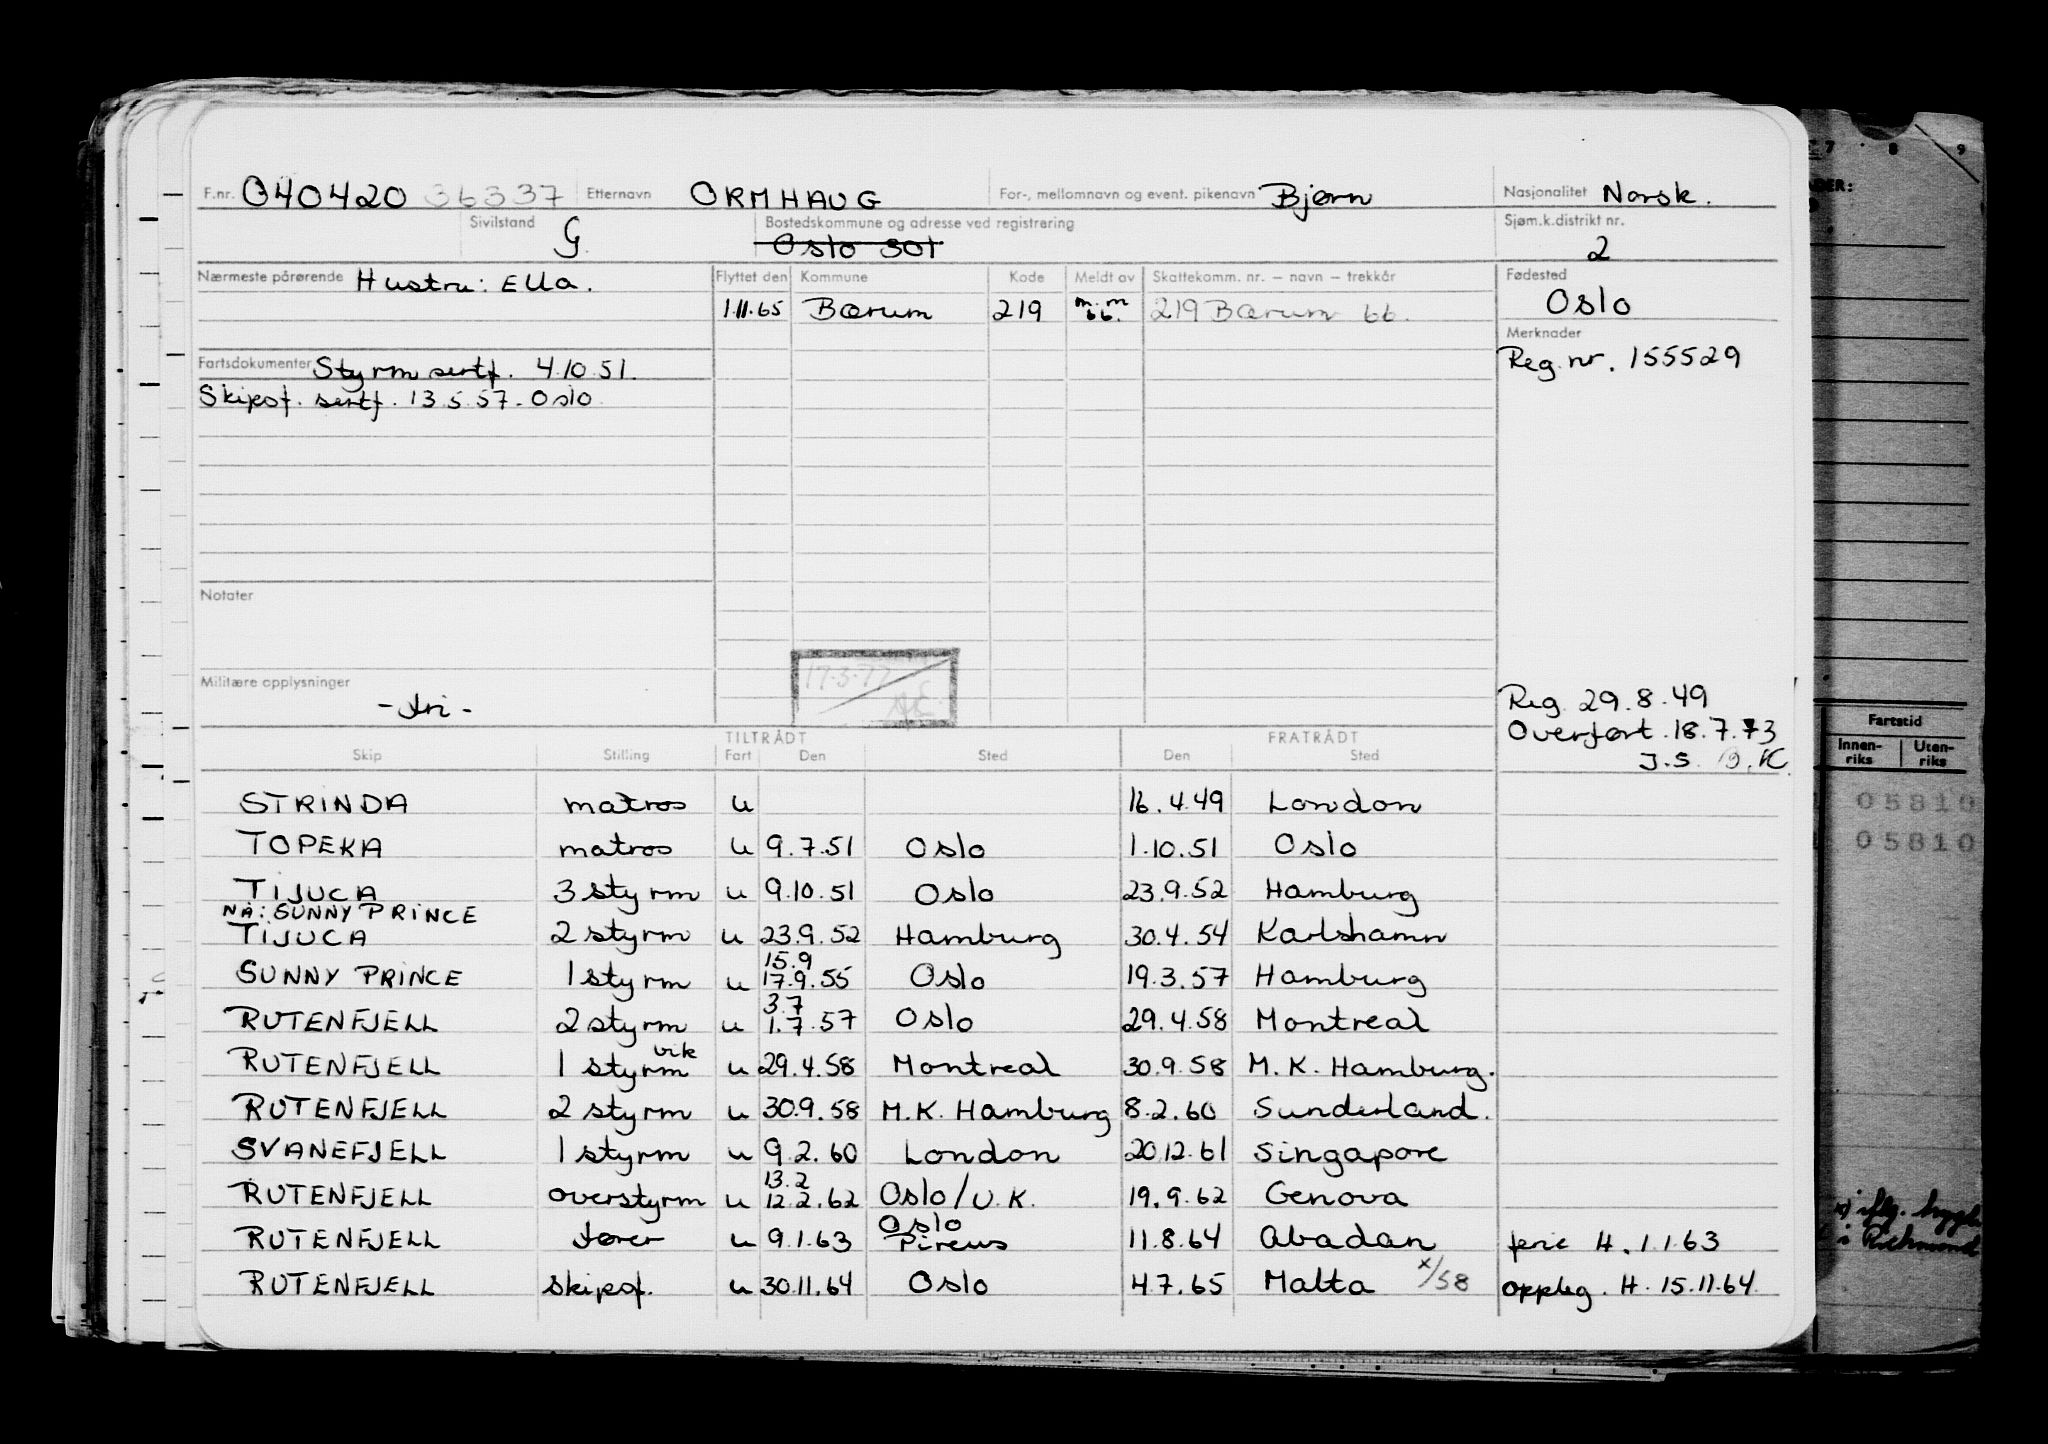 F.nr. 040420 36337 Etternavn ORMHAUG For-, mellomnavn og event. pikenavn Bjørn Nasjonalitet Norsk.
Sivilstand G. Bostedskommune og adresse ved registrering Oslo 301 Sjøm.k.distrikt nr. 2
Nærmeste pårørende Hustru: Ella. Flyttet den Kommune Kode Meldt av Skattekomm. nr. – navn – trekkår Fødested
1.11.65 Bærum 219 m.m 66. 219 Bærum 66. Oslo
Merknader
Fartsdokumenter Styrm sertf. 4.10.51. Reg. nr. 155529
Skipsf. sertf. 13.5.57. Oslo
Notater
17-3-77
Militære opplysninger
- fri -
Reg. 29.8.49
Overført. 18.7.73
J.S.
TILTRÅDT FRATRÅDT
Skip Stilling Fart Den Sted Den Sted
STRINDA matros u 16.4.49 London
TOPEKA matros u 9.7.51 Oslo 1.10.51 Oslo
TIJUCA 3 styrm u 9.10.51 Oslo 23.9.52 Hamburg
NÅ: SUNNY PRINCE
TIJUCA 2 styrm u 23.9.52 Hamburg 30.4.54 Karlshamn
15.9
SUNNY PRINCE 1 styrm u 17.9.55 Oslo 19.3.57 Hamburg
3.7
RUTENFJELL 2 styrm u 1.7.57 Oslo 29.4.58 Montreal
vik
RUTENFJELL 1 styrm u 29.4.58 Montreal 30.9.58 M.K. Hamburg.
RUTENFJELL 2 styrm u 30.9.58 M.K. Hamburg 8.2.60 Sunderland.
SVANEFJELL 1 styrm u 9.2.60 London 20.12.61 Singapore
13.2
RUTENFJELL overstyrm u 12.2.62 Oslo/U.K. 19.9.62 Genova
Oslo
RUTENFJELL fører u 9.1.63 Pireus 11.8.64 Abadan ferie H. 1.1.63
RUTENFJELL skipsf. u 30.11.64 Oslo 4.7.65 Malta x/58 oppleg. H. 15.11.64
7 8 9
Fartstid
Innen-riks Uten-riks
05810
05810
i Richmond